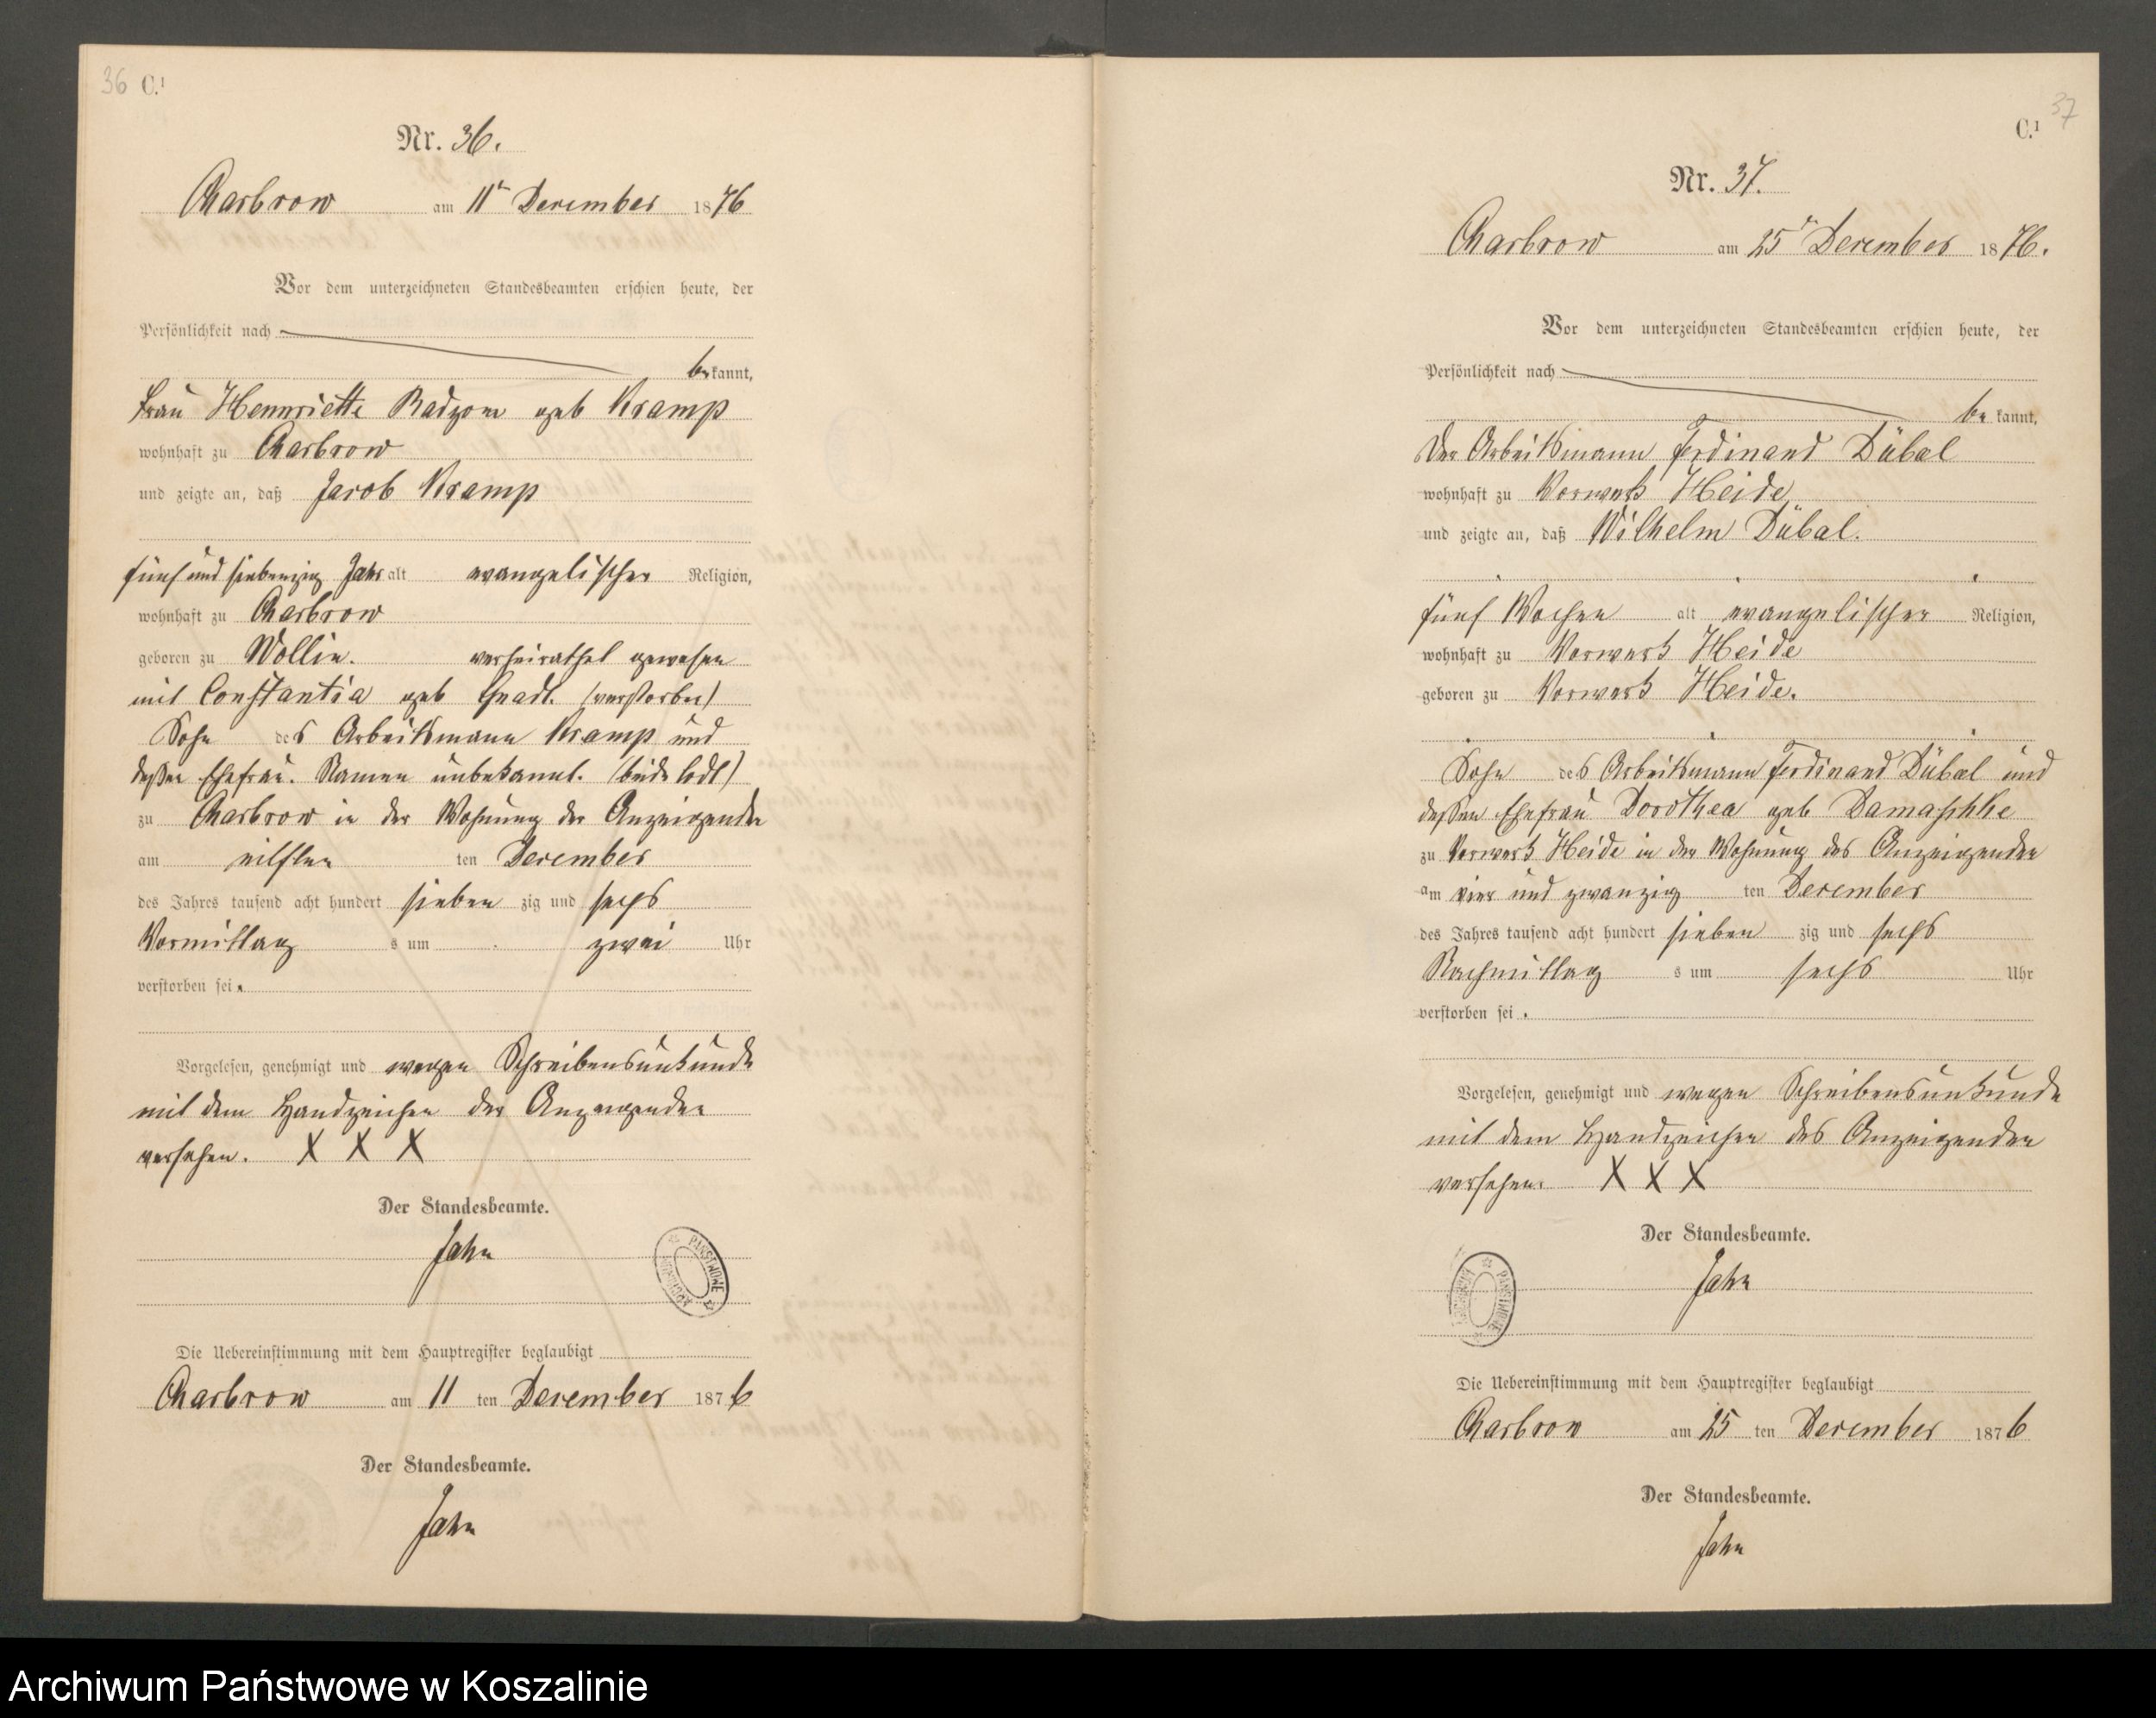 36 C.¹
Nr. 36.
Charbrow am 11ᵗ December 1876
Vor dem unterzeichneten Standesbeamten erschien heute, der
Persönlichkeit nach
bekannt,
Frau Hennriette Radzom geb Kramp
wohnhaft zu Charbrow
und zeigte an, daß Jacob Kramp
fünf und siebenzig Jahr alt evangelischer Religion,
wohnhaft zu Charbrow
geboren zu Wollin. verheirathet gewesen
mit Constantia geb (verstorben)
Sohn des Arbeitsmann Kramp und
deßen Ehefrau. Namen unbekannt. (beide todt)
zu Charbrow in der Wohnung der Anzeigenden
am eilften ten December
des Jahres tausend acht hundert sieben zig und sechs
Vormittag s um zwei Uhr
verstorben sei.
Vorgelesen, genehmigt und wegen Schreibensunkunde
mit dem Handzeichen der Anzeigenden
versehen. X X X
Der Standesbeamte.
Jahn
PAŃSTWOWE
Die Uebereinstimmung mit dem Hauptregister beglaubigt
Charbrow am 11 ten December 1876
Der Standesbeamte.
Jahn
C.¹ 37
Nr. 37.
Charbrow am 25ᵗ December 1876.
Vor dem unterzeichneten Standesbeamten erschien heute, der
Persönlichkeit nach
be kannt,
Der Arbeitsmann Ferdinand Dübal
wohnhaft zu Vorwerk Heide
und zeigte an, daß Wilhelm Dübal.
fünf Wochen alt evangelischer Religion,
wohnhaft zu Vorwerk Heide
geboren zu Vorwerk Heide.
Sohn des Arbeitsmann Ferdinand Dübal und
deßen Ehefrau Dorothea geb Damaschke
zu Vorwerk Heide in der Wohnung des Anzeigenden
am vier und zwanzig ten December
des Jahres tausend acht hundert sieben zig und sechs
Nachmittag s um sechs Uhr
verstorben sei.
Vorgelesen, genehmigt und wegen Schreibensunkunde
mit dem Handzeichen des Anzeigenden
versehen. X X X
Der Standesbeamte.
Jahn
PAŃSTWOWE
Die Uebereinstimmung mit dem Hauptregister beglaubigt
Charbrow am 25 ten December 1876
Der Standesbeamte.
Jahn
Archiwum Państwowe w Koszalinie